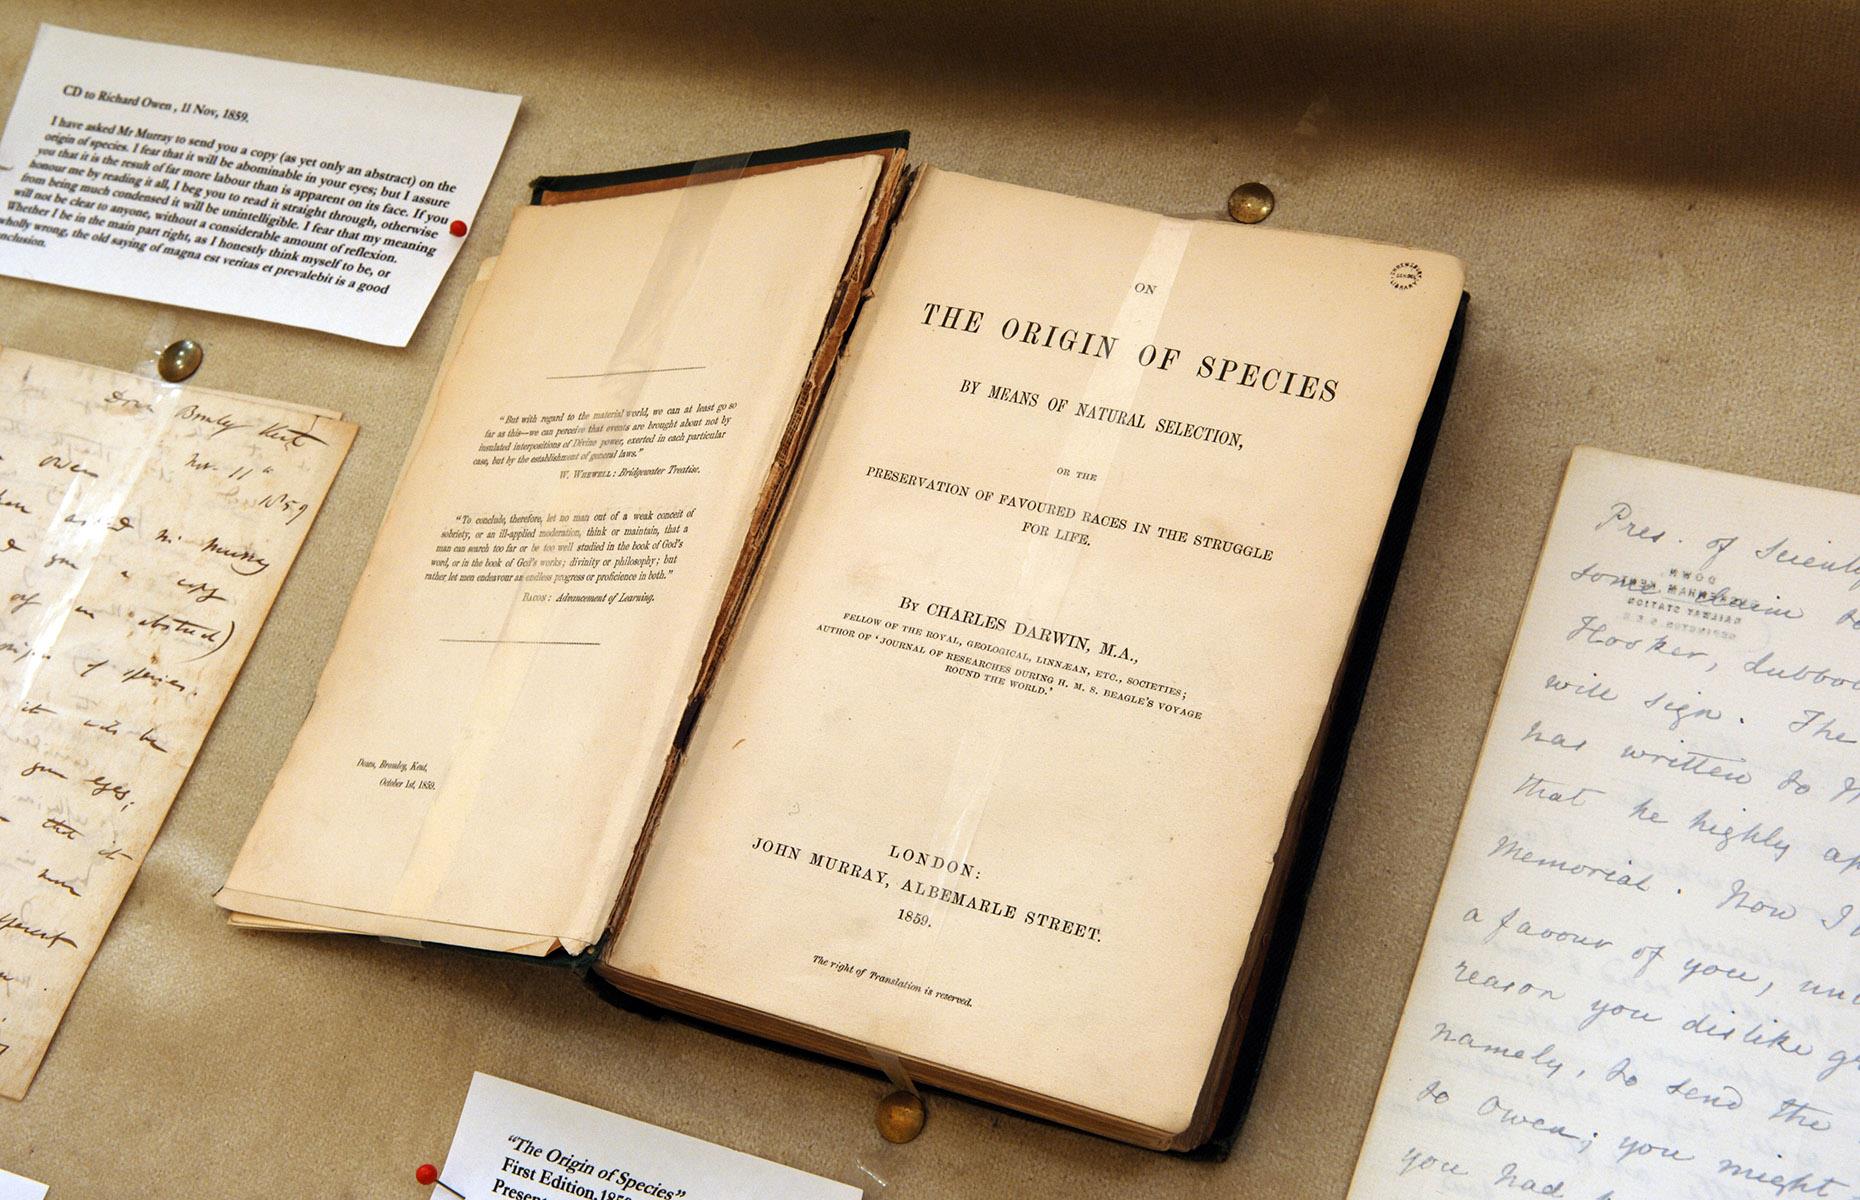 CD to Richard Owen , 11 Nov, 1859.
I have asked Mr Murray to send you a copy (as yet only an abstract) on the
origin of species. I fear that it will be abominable in your eyes; but I assure
you that it is the result of far more labour than is apparent on its face. If you
honour me by reading it all, I beg you to read it straight through, otherwise
from being much condensed it will be unintelligible. I fear that my meaning
will not be clear to anyone, without a considerable amount of reflexion.
Whether I be in the main part right, as I honestly think myself to be, or
wholly wrong, the old saying of magna est veritas et prevalebit is a good
nclusion.
Down Bromley Kent
Nov. 11th
1859
Owen
asked Mr Murray
you a copy
an abstract)
of species.
it will be
your eyes;
that it
"But with regard to the material world, we can at least go so
far as this—we can perceive that events are brought about not by
insulated interpositions of Divine power, exerted in each particular
case, but by the establishment of general laws."
W. Whewell: Bridgewater Treatise.
"To conclude, therefore, let no man out of a weak conceit of
sobriety, or an ill-applied moderation, think or maintain, that a
man can search too far or be too well studied in the book of God's
word, or in the book of God's works; divinity or philosophy; but
rather let men endeavour an endless progress or proficience in both."
Bacon: Advancement of Learning.
Down, Bromley, Kent,
October 1st, 1859.
ON
THE ORIGIN OF SPECIES
BY MEANS OF NATURAL SELECTION,
OR THE
PRESERVATION OF FAVOURED RACES IN THE STRUGGLE
FOR LIFE.
By CHARLES DARWIN, M.A.,
FELLOW OF THE ROYAL, GEOLOGICAL, LINNÆAN, ETC., SOCIETIES;
AUTHOR OF 'JOURNAL OF RESEARCHES DURING H. M. S. BEAGLE'S VOYAGE
ROUND THE WORLD.'
LONDON:
JOHN MURRAY, ALBEMARLE STREET.
1859.
The right of Translation is reserved.
"The Origin of Species"
First Edition, 185
Present
Pres. of Scienti
some claim to
Hooker, dubbo
will sign. The
has written to
that he highly ap
Memorial. Now I
a favour of you,
reason you dislike
namely, to send the
to Owen; you might
you had